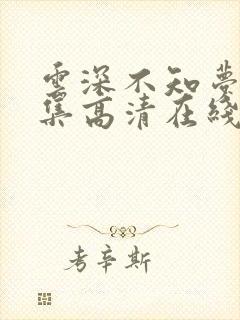 雲深不知夢
集高清在綫
考辛斯